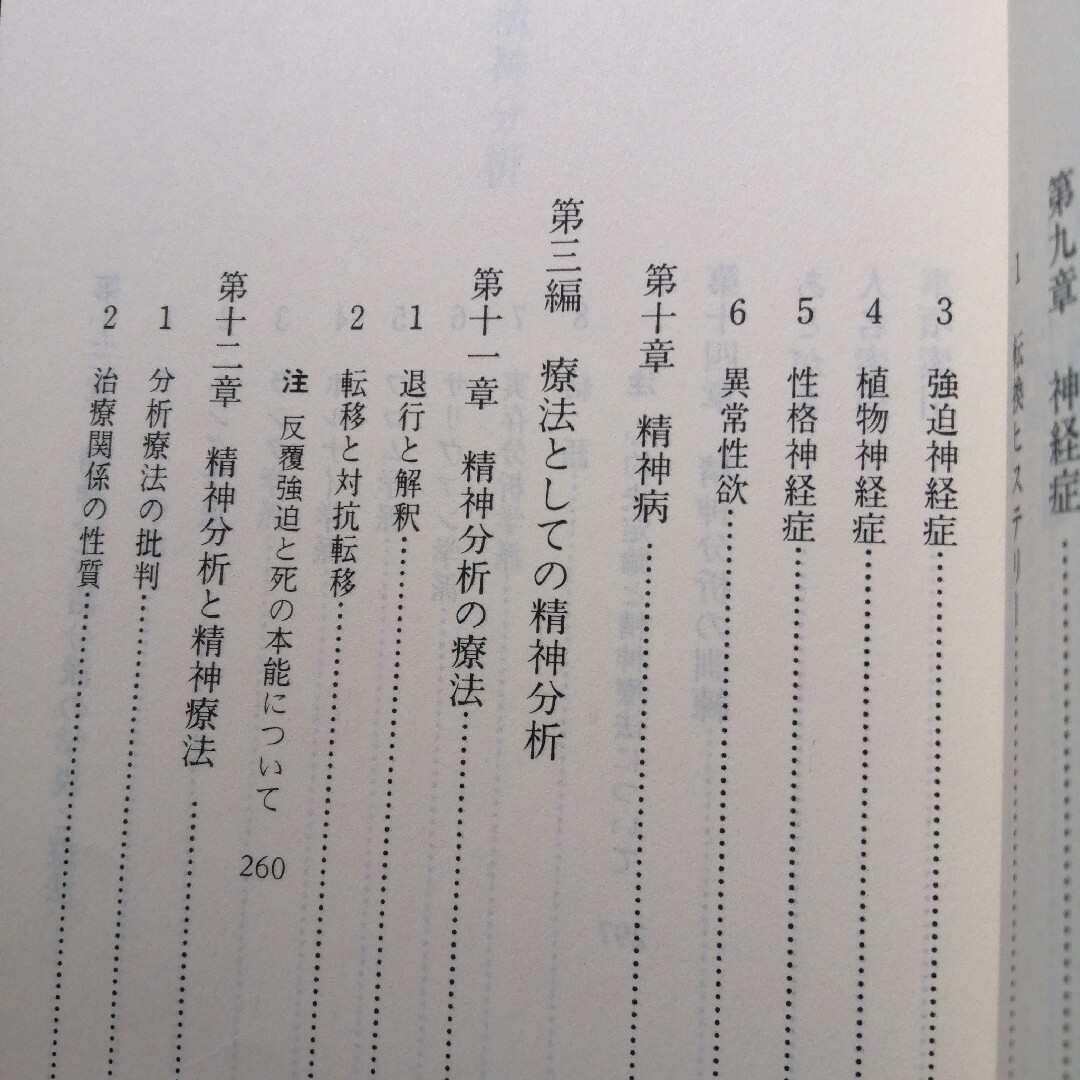 第九章 神経症
1 転換ヒステリー
3 強迫神経症
4 植物神経症
5 性格神経症
6 異常性欲
第十章 精神病
第三編 療法としての精神分析
第十一章 精神分析の療法
1 退行と解釈
2 転移と対抗転移
注 反覆強迫と死の本能について 260
第十二章 精神分析と精神療法
1 分析療法の批判
2 治療関係の性質